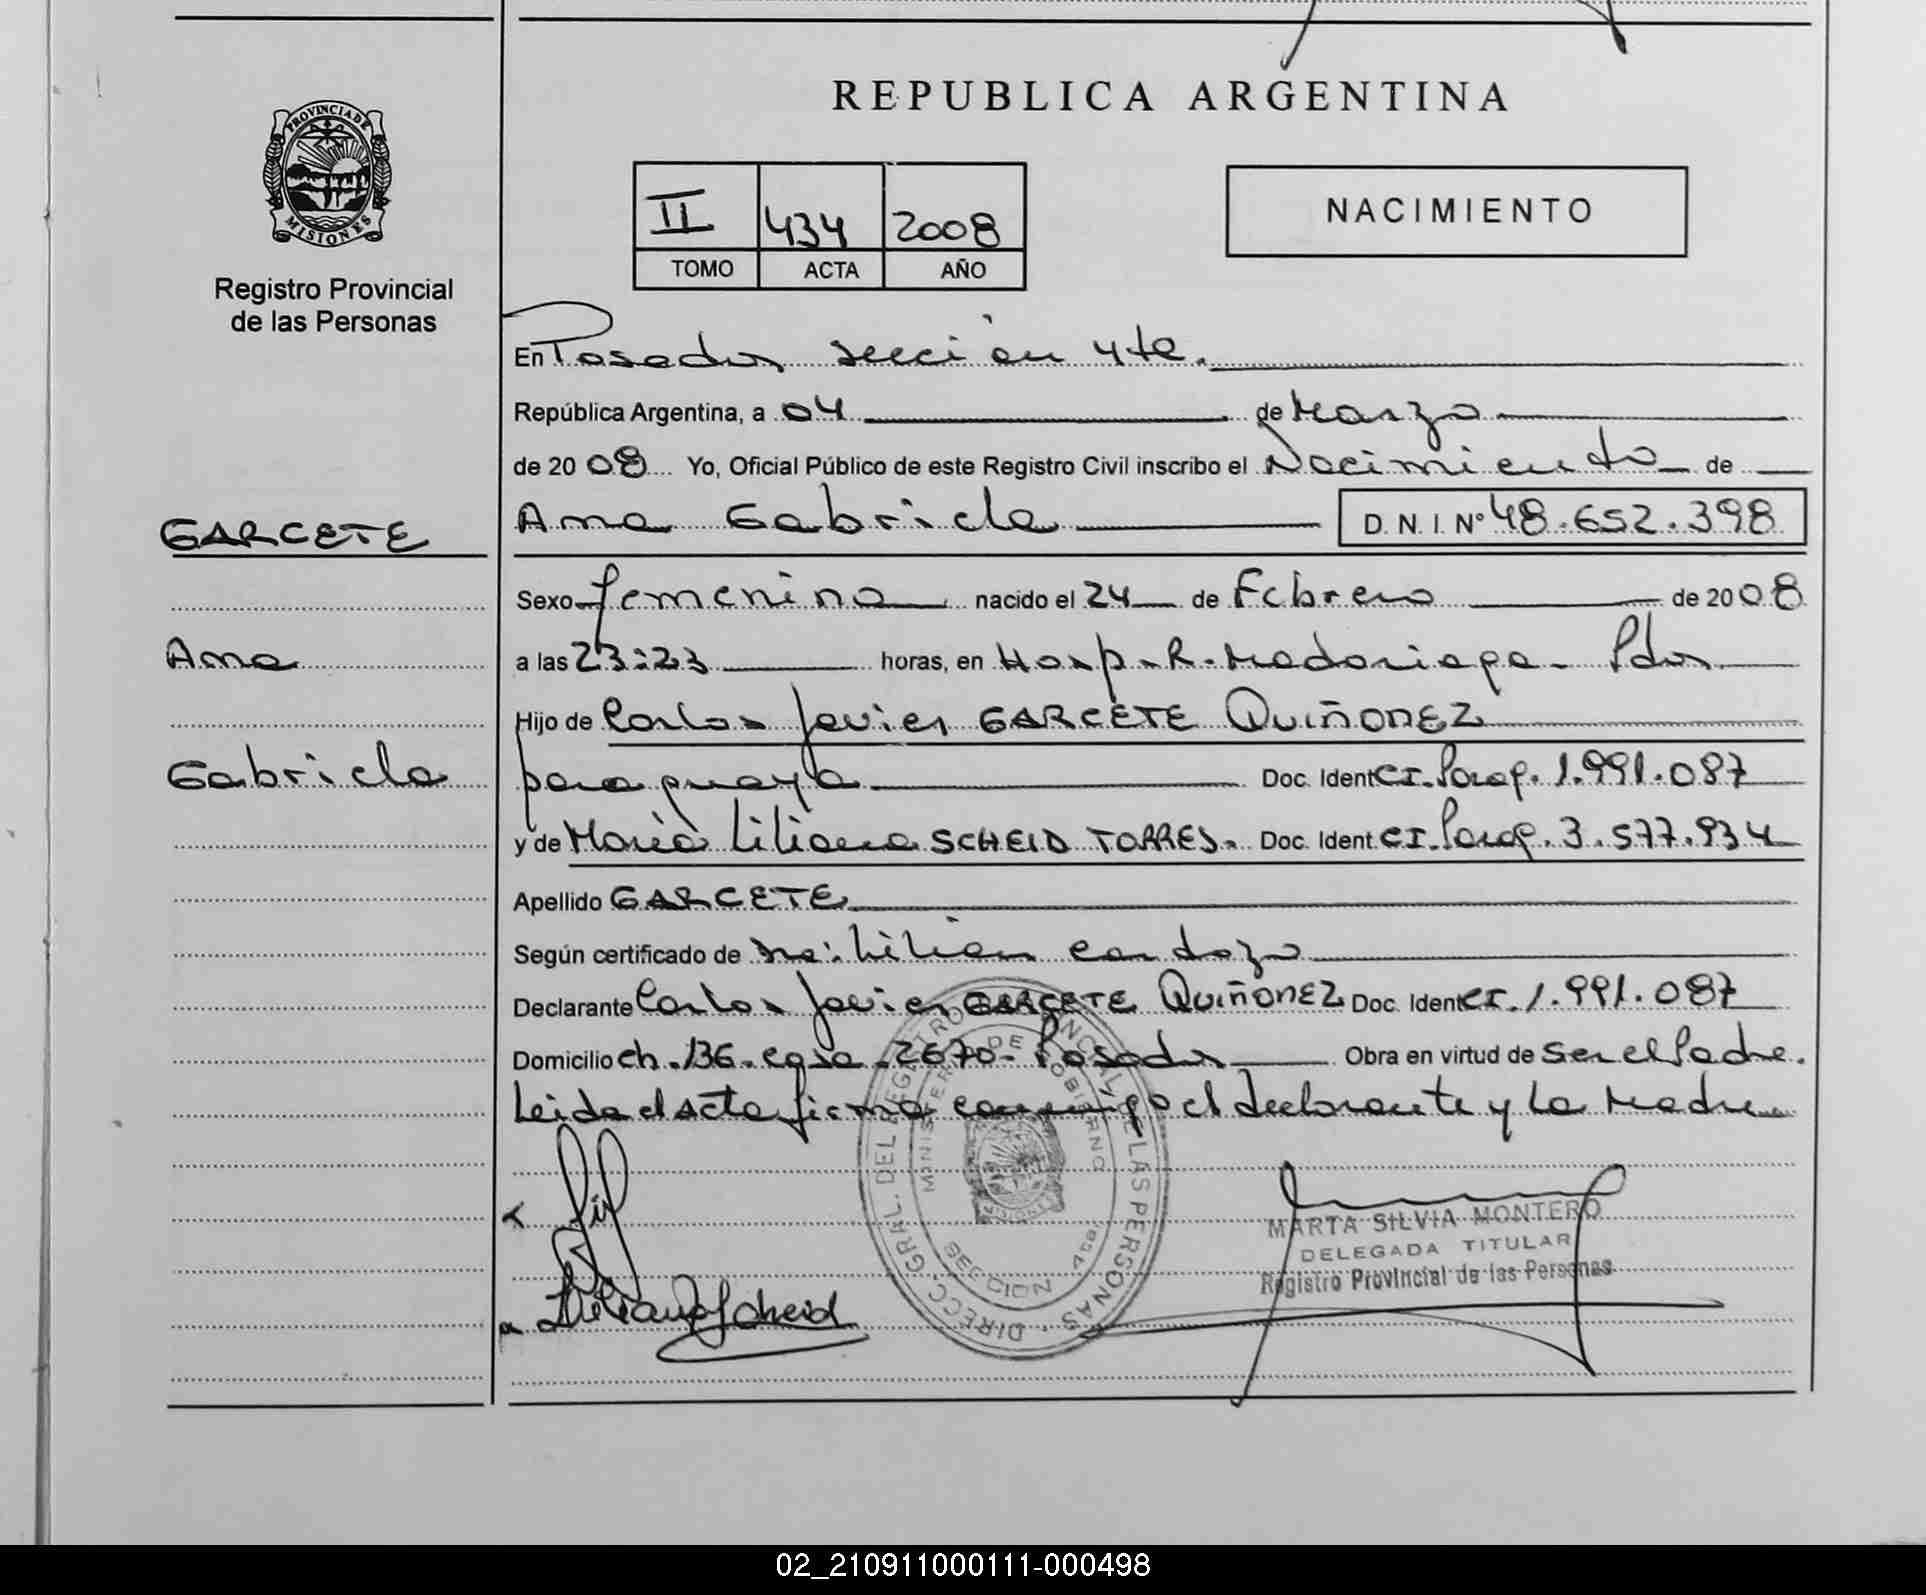 REPUBLICA ARGENTINA
PROVINCIA DE
MISIONES
Registro Provincial
de las Personas
II 434 2008
TOMO ACTA AÑO
NACIMIENTO
En Posadas sección 4ta.
República Argentina, a 04 de Marzo
de 2008 Yo, Oficial Público de este Registro Civil inscribo el Nacimiento de
GARCETE
Ana Gabriela D. N. I. Nº 48.652.398
Sexo femenino nacido el 24 de Febrero de 2008
Ana
a las 23:23 horas, en Hosp. R. Madariaga - Pdas
Hijo de Carlos Javier GARCETE QUIÑONEZ
Gabriela
paraguaya Doc. Ident CI. Parag. 1.991.087
y de María Liliana SCHEID TORRES. Doc. Ident. CI. Parag. 3.577.934
Apellido GARCETE
Según certificado de Lilian Cardozo
Declarante Carlos Javier GARCETE QUIÑONEZ Doc. Ident CI. 1.991.087
Domicilio ch. 136. casa. 2670- Posadas Obra en virtud de ser el Padre.
Leida el acta firma conmigo el declarante y la Madre
DIRECC. GRAL. DEL REGISTRO PROVINCIAL DE LAS PERSONAS
MINISTERIO DE GOBIERNO
MISIONES
SECCION 4ta
MARTA SILVIA MONTERO
DELEGADA TITULAR
Registro Provincial de las Personas
Liliana Scheid
02_210911000111-000498